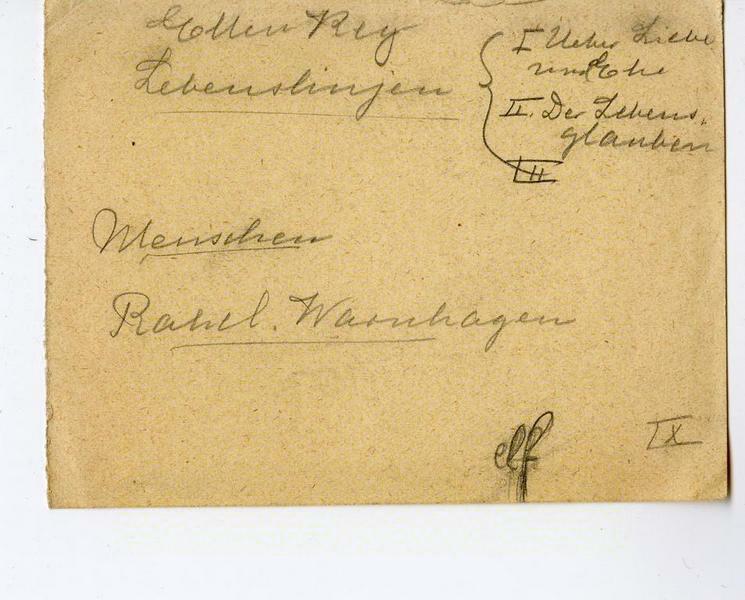 Ellen Key
Lebenslinjen
I Ueber Liebe
und Ehe
II. Der Lebens,
glauben
III
Menschen
Rahel. Warnhagen
elf
IX